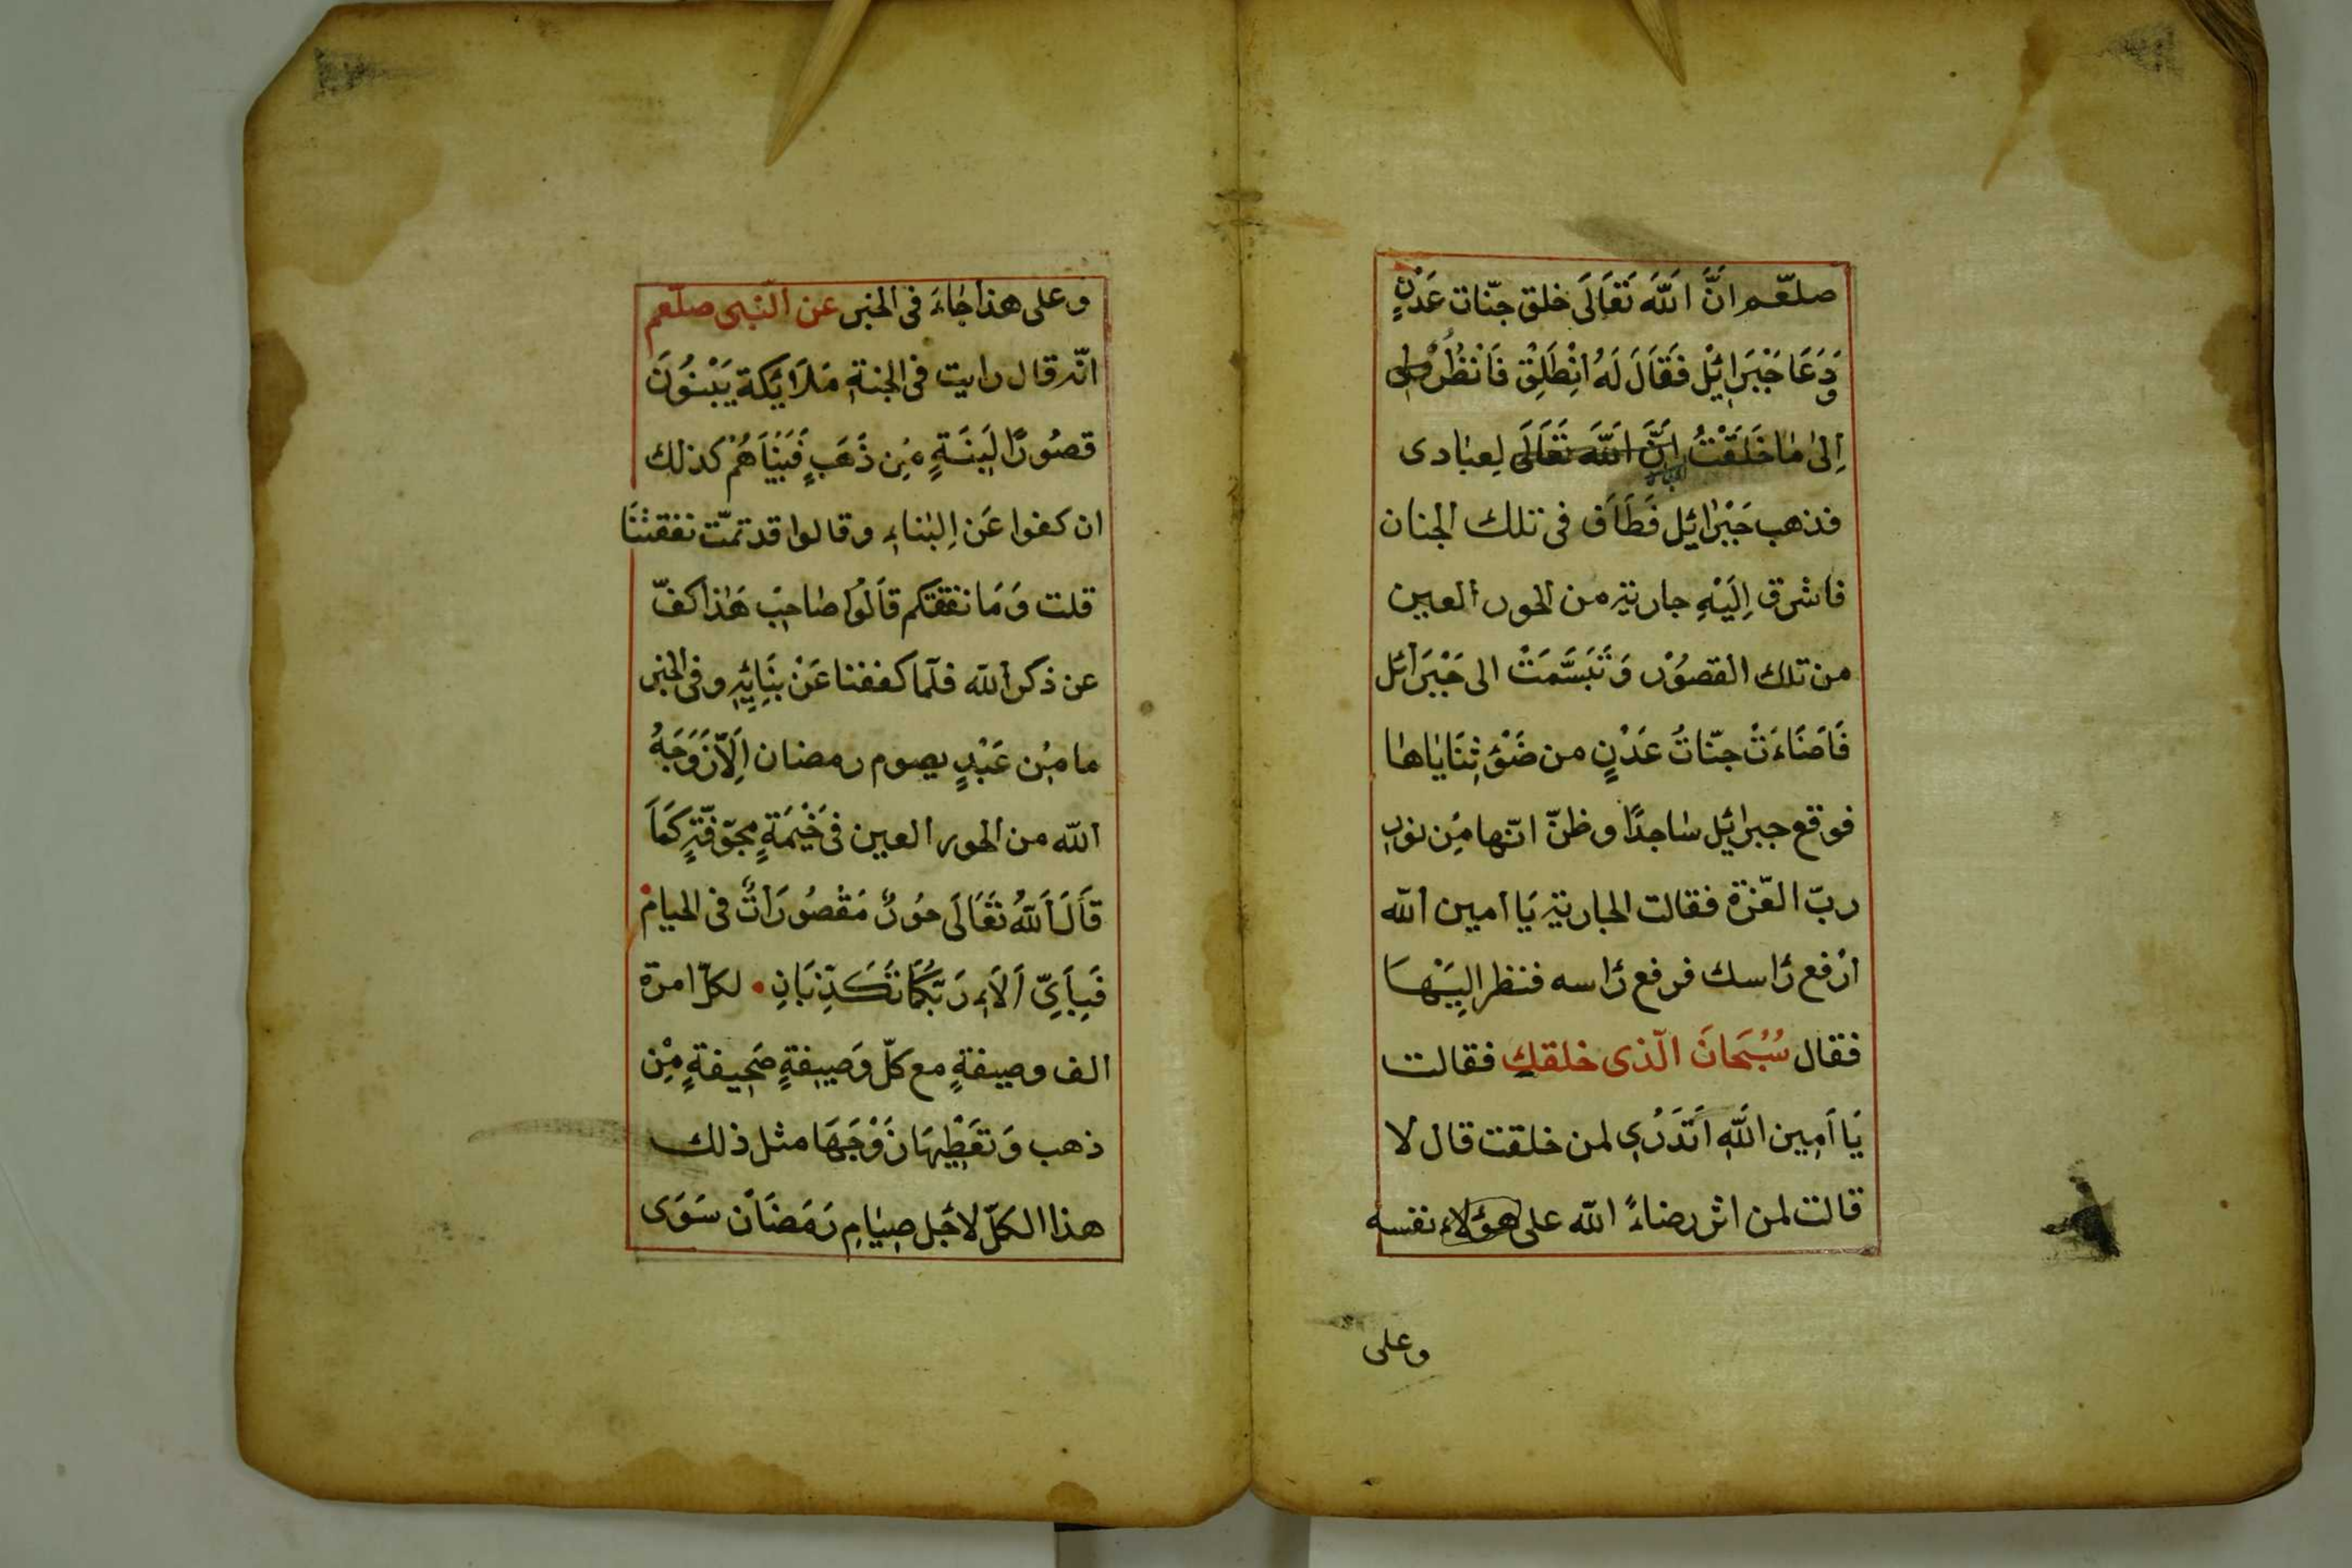 صلعّم انَّ اللّٰهَ تَعَالَى خلق جنّات عَدْنٍ
وَدَعَا جَبْرَائِيْل فَقَالَ لَهُ اِنْطَلِقْ فَانْظُرْ
اِلىٰ مٰا خَلَقْتُ اِنَّ اللّٰهَ تَعَالَى لِعِبٰادى
فذهب جَبْرٰائيل فَطَافَ فى تلك الجنان
فاشرق اِلَيْهِ جارية من الحور العين
من تلك القصُوْر وَتَبَسَّمَتْ الى جَبْرَائل
فَاَضَاءَتْ جنّاتُ عَدْنٍ من ضَوْءِ ثَنَايٰاهٰا
فوقع جبرائيل سٰاجدًا وظنّ انّها مِن نور
ربّ العّزة فقالت الجارية يَا امين اللّٰه
ارْفع رَاسك فرفع رَاسه فنظر اِلَيْهَا
فقال سُبْحَانَ الّذى خلقكِ فقالت
يَا اَمِين اللّٰهِ اَتَدْرِى لمن خلقت قال لا
قالت لمن اثر رضاءً اللّٰه على هؤلاء نفسه
وعلى
وعلى هذا جٰاءَ فى الخبر عن النّبى صلّعم
انّه قال رايت فى الجنةِ مَلَايَكة يَبْنُوَنَ
قصُورًا لَبِنَةٍ مِن ذَهَبٍ فَبَيْنَاهُمْ كذلك
ان كفوا عَن اِلبْناءِ وقالوا قد تمّت نفقتنَا
قلت وَمَا نفقتكم قَالُوا صٰاحِبْ هَٰذا كفّ
عن ذكر اللّٰه فلّما كففنا عَنْ بِنَائِهِ وفى الخبر
ما مِن عَبْدٍ يصوم رمضان اِلّاَ زَوَجَهُ
اللّٰه من الحور العين فى خَيْمَةٍ مجَوّفَةٍ كَمَا
قَالَ اَللّٰهُ تَعَالَى حُورٌ مَقْصُورَاتٌ فى الخيام
فَبِاَىِّ اَلَاءِ رَبِّكُمَا تُكَذِّبَانِ • لكلّ امرة
الف وصيفةٍ مع كلّ وَصِيفةٍ صَحِيفةٍ مِْن
ذهب وَتعَطِْيهَا زَوْجَهَا مثل ذلك
هذا الكلّ لاجَل صِيَامِ رَمَضَان سَوَى